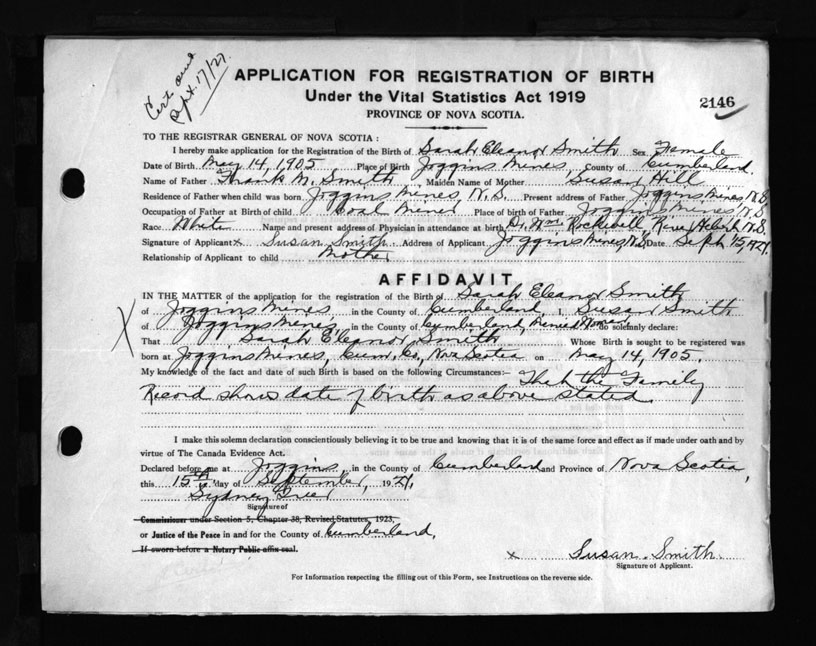 Cert sent
Sept. 17/27.
APPLICATION FOR REGISTRATION OF BIRTH
Under the Vital Statistics Act 1919
2146
PROVINCE OF NOVA SCOTIA.
TO THE REGISTRAR GENERAL OF NOVA SCOTIA:
I hereby make application for the Registration of the Birth of Sarah Eleanor Smith Sex Female
Date of Birth May 14, 1905 Place of Birth Joggins Mines, County of Cumberland
Name of Father Frank M. Smith, Maiden Name of Mother Susan Hill
Residence of Father when child was born Joggins Mines, N.S. Present address of Father Joggins Mines, N.S.
Occupation of Father at Birth of child Coal Miner Place of birth of Father Joggins Mines, N.S.
Race White Name and present address of Physician in attendance at birth Dr. Wm. Rockwell, River Hebert N.S.
Signature of Applicant x Susan Smith Address of Applicant Joggins Mines, N.S. Date Sept. 15, 1927.
Relationship of Applicant to child Mother
AFFIDAVIT
IN THE MATTER of the application for the registration of the Birth of Sarah Eleanor Smith
of Joggins Mines in the County of Cumberland, I, Susan Smith
of Joggins Mines, in the County of Cumberland, Married Woman do solemnly declare:
That Sarah Eleanor Smith Whose Birth is sought to be registered
born at Joggins Mines, Cum. Co, Nova Scotia on May 14, 1905.
My knowledge of the fact and date of such Birth is based on the following Circumstances:— That the Family
Record shows date of birth as above stated.
I make this solemn declaration conscientiously believing it to be true and knowing that it is of the same force and effect as if made under oath and by
virtue of The Canada Evidence Act.
Declared before me at Joggins, in the County of Cumberland and Province of Nova Scotia,
this 15th day of September, 1927.
Sydney
Signature of
Commissioner under Section 5, Chapter 38, Revised Statutes, 1923.
or Justice of the Peace in and for the County of Cumberland,
If sworn before a Notary Public affix seal.
x Susan Smith
Signature of Applicant.
For Information respecting the filling out of this Form, see Instructions on the reverse side.